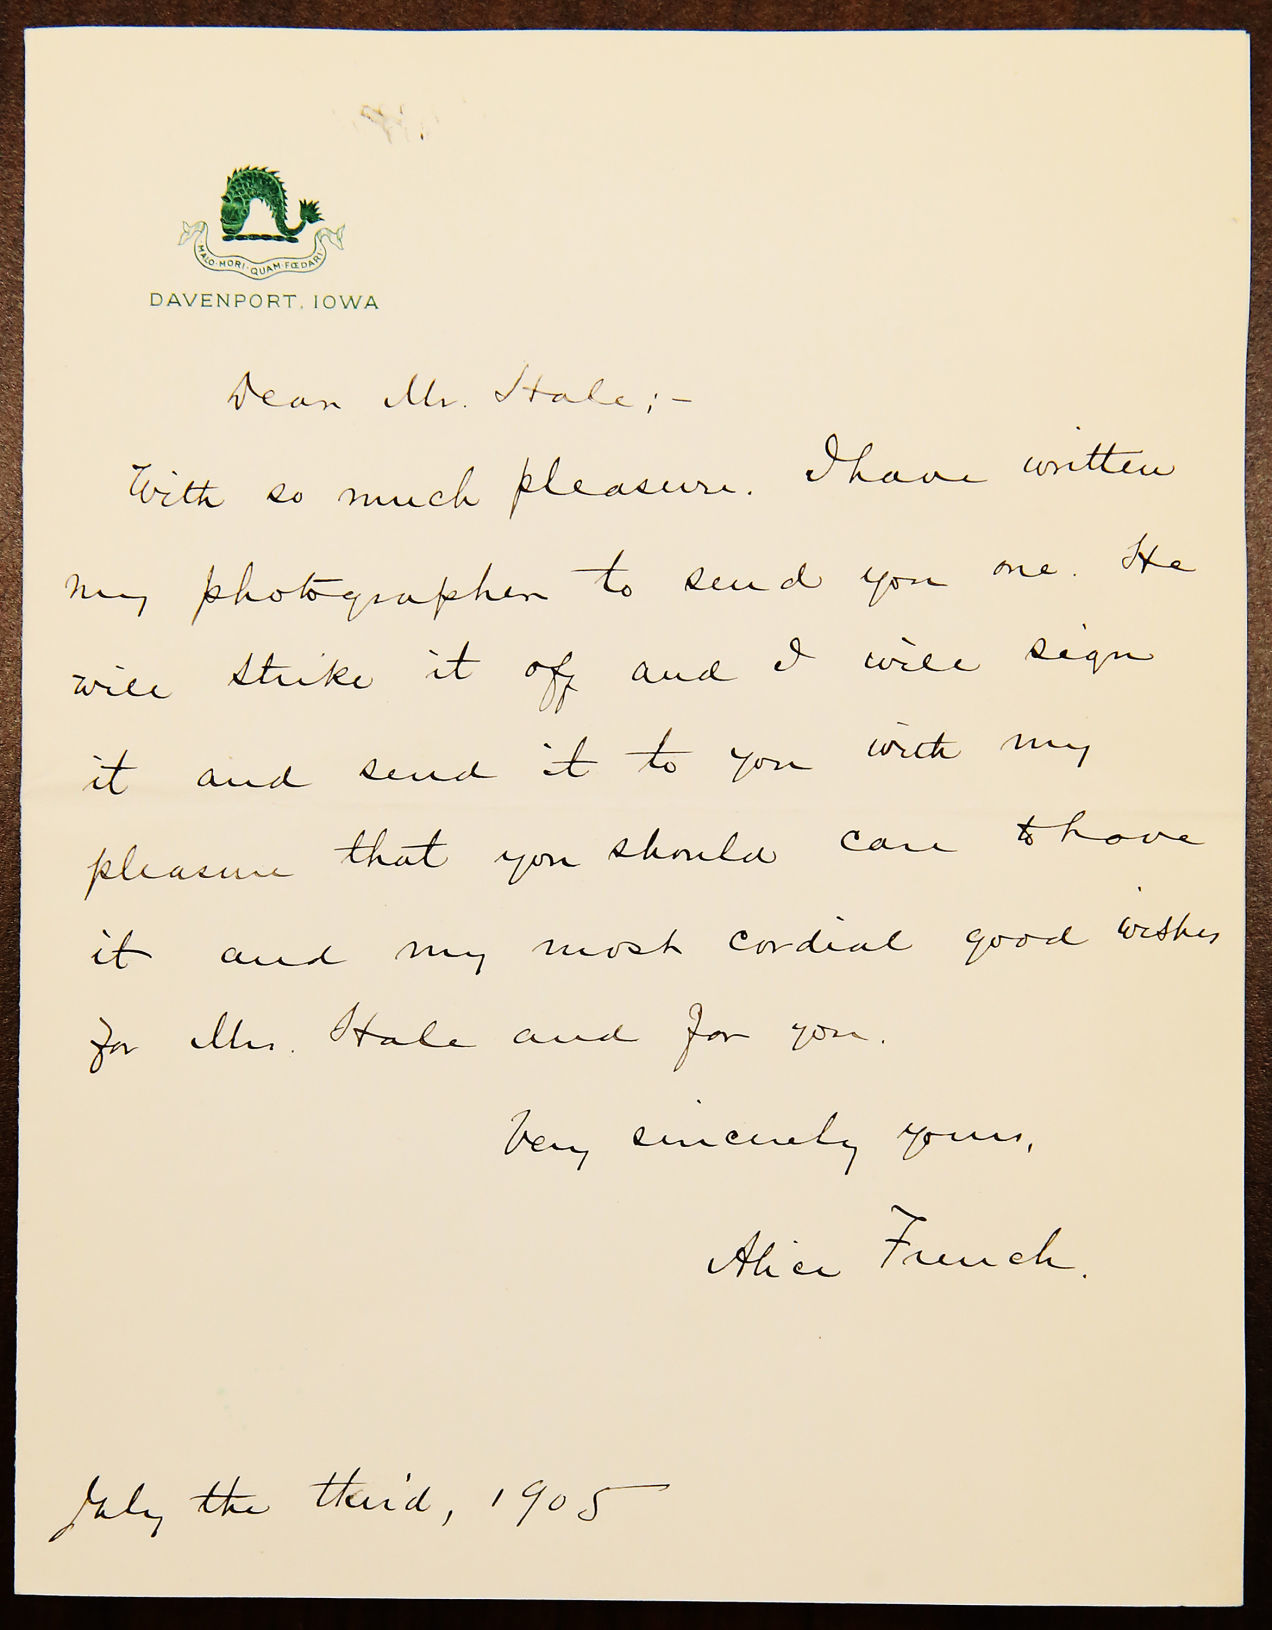 MALO·MORI·QUAM·FŒDARI
DAVENPORT, IOWA
Dear Mr. Hale;-
With so much pleasure. I have written
my photographer to send you one. He
will strike it off and I will sign
it and send it to you with my
pleasure that you should care to have
it and my most cordial good wishes
for Mrs. Hale and for you.
Very sincerely yours,
Alice French.
July the third, 1905